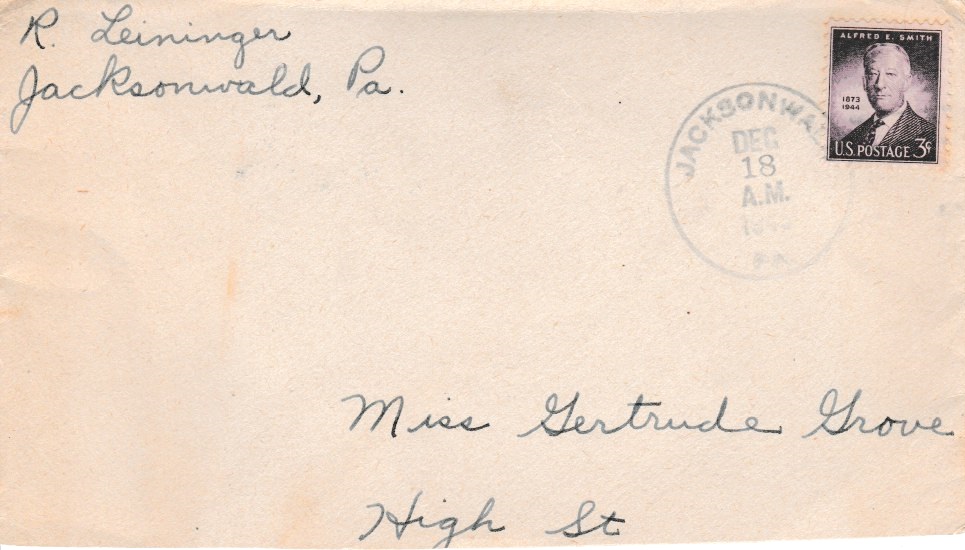 R. Leininger
Jacksonwald, Pa.
ALFRED E. SMITH
1873
1944
U.S. POSTAGE 3¢
JACKSONWAL
DEC
18
A.M.
PA
Miss Gertrude Grove
High St